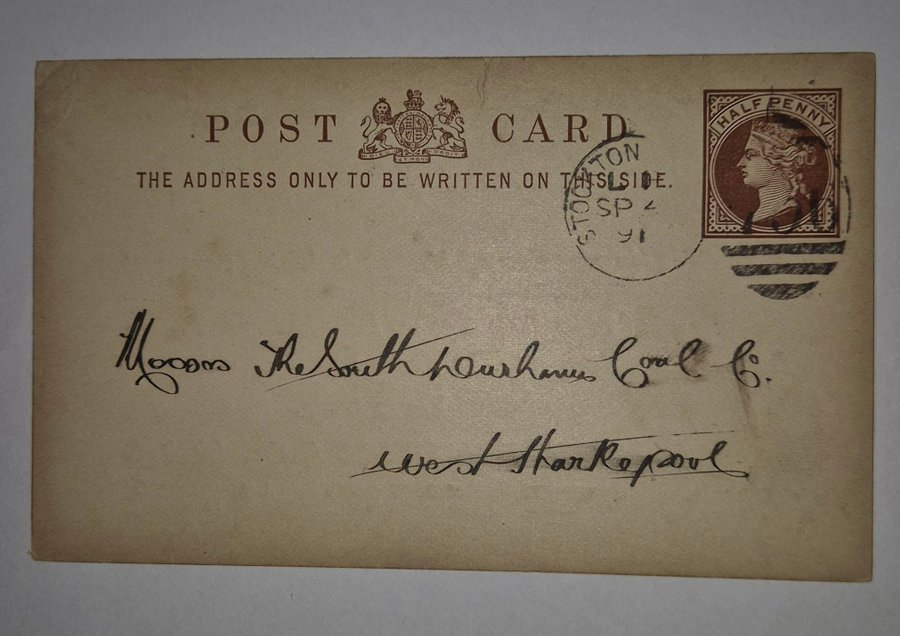 POST CARD
THE ADDRESS ONLY TO BE WRITTEN ON THIS SIDE.
HALF PENNY
STOCKTON
L 1
SP 4
91
Messrs The South Durham Coal Co.
West Hartlepool